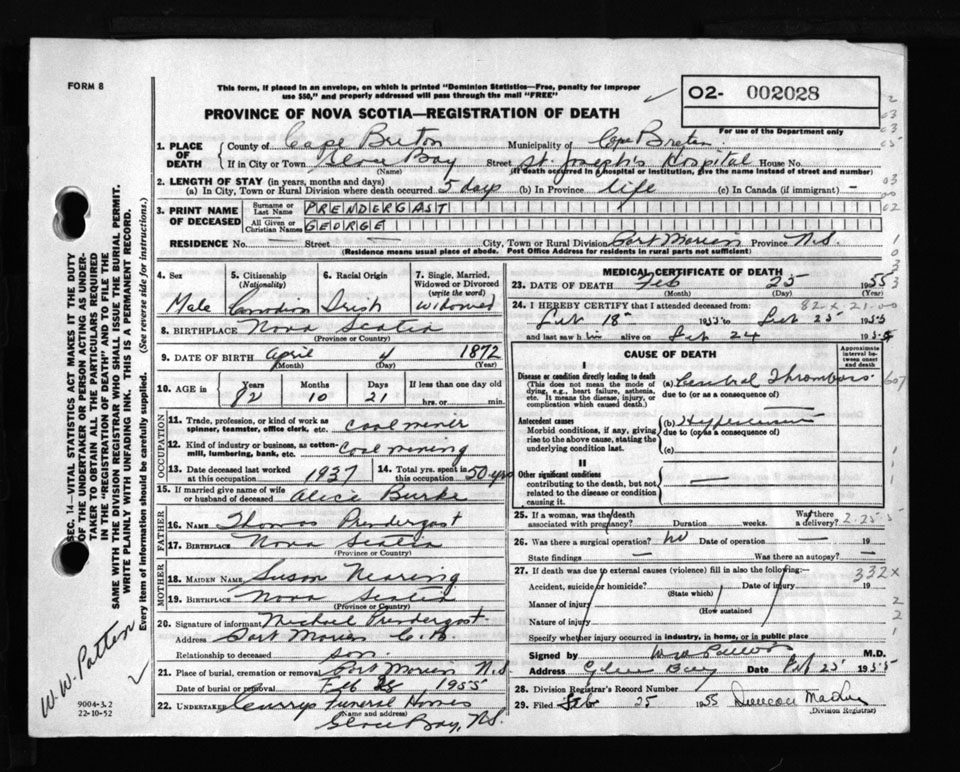 FORM 8
This form, if placed in an envelope, on which is printed "Dominion Statistics—Free, penalty for improper
use $50," and properly addressed will pass through the mail "FREE"
O2- 002028
For use of the Department only
PROVINCE OF NOVA SCOTIA—REGISTRATION OF DEATH
1. PLACE OF DEATH
County of Cape Breton Municipality of Cape Breton
If in City or Town Glace Bay Street St. Joseph's Hospital House No.
(Name) (If death occurred in a hospital or institution, give the name instead of street and number)
2. LENGTH OF STAY (in years, months and days)
(a) In City, Town or Rural Division where death occurred 5 days (b) In Province life (c) In Canada (if immigrant) —
3. PRINT NAME OF DECEASED
Surname or Last Name PRENDERGAST
All Given or Christian Names GEORGE
RESIDENCE No. — Street — City, Town or Rural Division Port Morien Province N.S.
(Residence means usual place of abode. Post Office Address for residents in rural parts not sufficient)
4. Sex Male
5. Citizenship (Nationality) Canadian
6. Racial Origin Irish
7. Single, Married, Widowed or Divorced (write the word) Widowed
8. BIRTHPLACE Nova Scotia
(Province or Country)
9. DATE OF BIRTH April 4 1872
(Month) (Day) (Year)
10. AGE in Years 82 Months 10 Days 21 If less than one day old hrs. or min.
OCCUPATION
11. Trade, profession, or kind of work as spinner, teamster, office clerk, etc. coal miner
12. Kind of industry or business, as cotton-mill, lumbering, bank, etc. coal mining
13. Date deceased last worked at this occupation 1937
14. Total yrs. spent in this occupation 50 yrs
15. If married give name of wife or husband of deceased Alice Burke
FATHER
16. NAME Thomas Prendergast
17. BIRTHPLACE Nova Scotia
(Province or Country)
MOTHER
18. MAIDEN NAME Susan Nearing
19. BIRTHPLACE Nova Scotia
(Province or Country)
20. Signature of informant Michael Prendergast
Address Port Morien C.B.
Relationship to deceased son
21. Place of burial, cremation or removal Port Morien N.S.
Date of burial or removal Feb 28 1955
22. UNDERTAKER Currys Funeral Homes
(Name and address)
Glace Bay, N.S.
MEDICAL CERTIFICATE OF DEATH
23. DATE OF DEATH Feb 25 1955
(Month) (Day) (Year)
82 x 21.00
24. I HEREBY CERTIFY that I attended deceased from:
Feb 18 1955 to Feb 25 1955
and last saw him alive on Feb 24 1955
CAUSE OF DEATH
Approximate interval between onset and death
I
Disease or condition directly leading to death
(This does not mean the mode of dying, e.g., heart failure, asthenia, etc. It means the disease, injury, or complication which caused death.)
(a) Cerebral Thrombosis
due to (or as a consequence of)
Antecedent causes
Morbid conditions, if any, giving rise to the above cause, stating the underlying condition last.
(b) Hypertension
due to (or as a consequence of)
(c)
II
Other significant conditions
contributing to the death, but not related to the disease or condition causing it.
—
25. If a woman, was the death associated with pregnancy? Duration weeks. Was there a delivery?
2.25.5
26. Was there a surgical operation? no Date of operation — 19 —
State findings — Was there an autopsy? —
27. If death was due to external causes (violence) fill in also the following:—
332x
Accident, suicide or homicide? Date of injury 19
(State which)
Manner of injury
(How sustained)
Nature of injury
Specify whether injury occurred in industry, in home, or in public place
Signed by W W Patton M.D.
Address Glace Bay Date Feb 25 1955
28. Division Registrar's Record Number
29. Filed Feb 25 1955 Duncan
(Division Registrar)
SEC. 14—VITAL STATISTICS ACT MAKES IT THE DUTY
OF THE UNDERTAKER OR PERSON ACTING AS UNDER-
TAKER TO OBTAIN ALL THE PARTICULARS REQUIRED
IN THE "REGISTRATION OF DEATH" AND TO FILE THE
SAME WITH THE DIVISION REGISTRAR WHO SHALL ISSUE THE BURIAL PERMIT.
WRITE PLAINLY WITH UNFADING INK. THIS IS A PERMANENT RECORD.
Every item of information should be carefully supplied. (See reverse side for instructions.)
W.W. Patton
9004-3.2
22-10-52